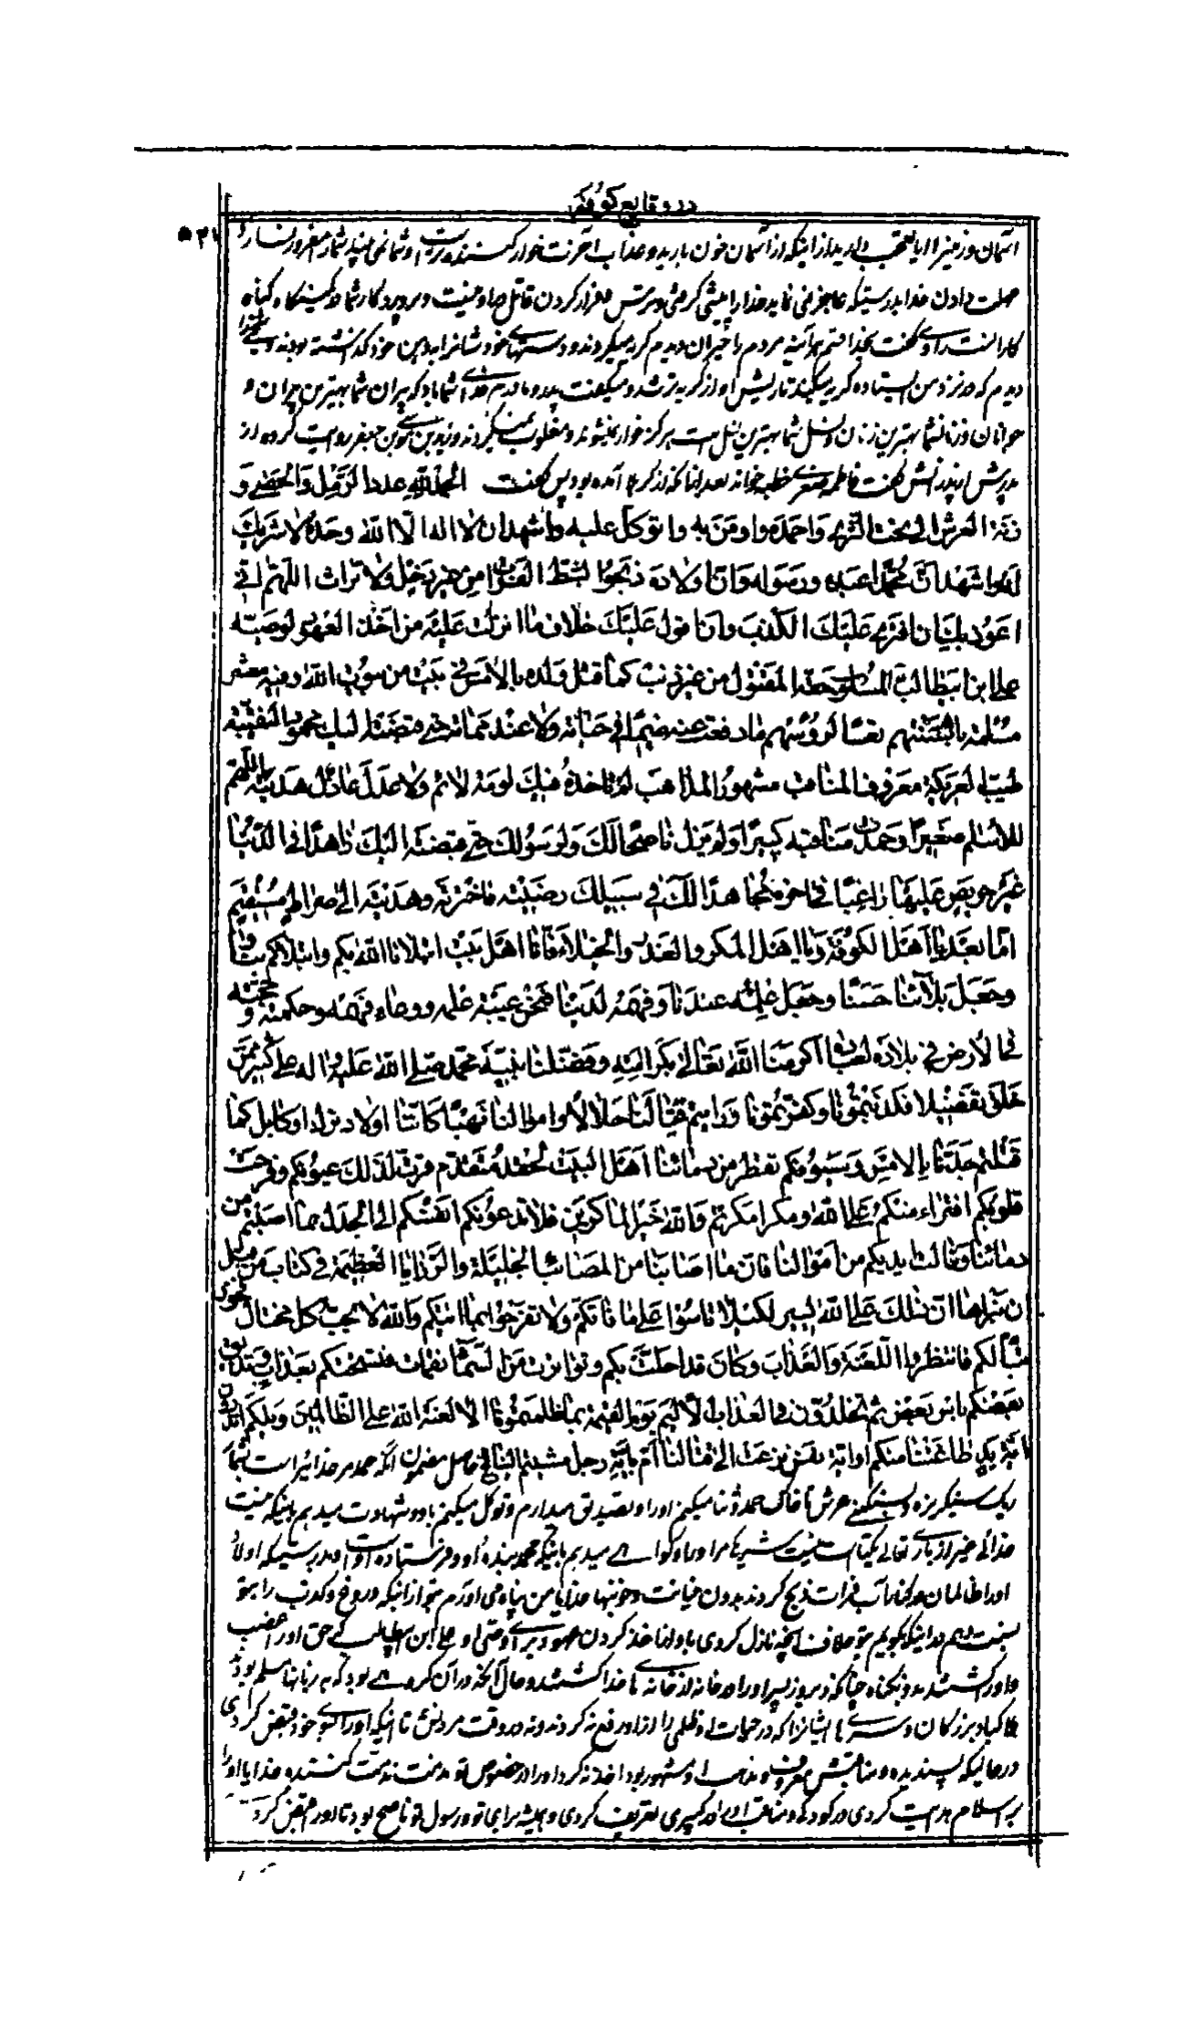 در وقایع کوفه
۵۳۱
آسمان و زمین را آیا تعجب دارید از اینکه از آسمان خون بارید و عذاب آخرت خوار کننده‌تر است و شما نمی
مهلت دادن خدا بدرستیکه عاجز نمی نماید خدا را پیشی گرفتن و ترس فرار کردن قاتل و نیست و پروردگار شما در کمینگاه گناه
کاران است راوی گفت بخدا قسم هر آئینه مردم را حیران دیدم گریه میکردند و دستهای خود شانرا بدهن خود گذاشته بودند
دیدم که در نزد من ایستاده گریه میکند تا ریشش او از گریه تر شد و میگفت پدر و مادرم فدای شما باد که پیران شما بهترین پیران و
جوانان و زنان شما بهترین زنان و نسل شما بهترین نسل است هرگز خوار نمیشوند و مغلوب نمیگردند و زید بن موسی بن جعفر روایت کرده از
پدرش از پدرانش گفت فاطمه صغری خطبه خواند بعد از آنکه از کربلا آمده بود پس گفت الحمد لله عدد الرمل والحصی و
زنة العرش الی تحت الثری واحمده واومن به واتوکل علیه واشهد ان لا اله الا الله وحده لا شریک
له واشهد ان محمدا عبده ورسوله وان اولاده ذبحوا بشط الفرات من غیر ذحل ولا تراث اللهم انی
اعوذ بک ان افتری علیک الکذب وان اقول علیک خلاف ما انزلت علیه من اخذ العهود لوصیه
علی ابن ابیطالب المسلوب حقه المقتول من غیر ذنب کما قتل ولده بالامس فی بیت من بیوت الله وفیه معشر
مسلمة بالسنتهم تعسا لرؤسهم ما دفعت عنه ضیما فی حیاته ولا عند مماته حتی قبضته الیک محمود النقیبة
طیب العریکة معروف المناقب مشهور المذاهب لم تاخذه فیک لومة لائم ولا عذل عاذل هدیته یا اللهم
للاسلام صغیرا وحمدت مناقبه کبیرا ولم یزل ناصحا لک ولرسولک حتی قبضته الیک زاهدا فی الدنیا
غیر حریص علیها راغبا فی الاخرة مجاهدا لک فی سبیلک رضیته فاخترته وهدیته الی صراط مستقیم
اما بعد یا اهل الکوفة ویا اهل المکر والغدر والخیلاء فانا اهل بیت ابتلانا الله بکم وابتلاکم بنا
وجعل بلائنا حسنا وجعل علمه عندنا وفهمه لدینا فنحن عیبة علمه ووعاء فهمه وحکمته وحجته
فی الارض فی بلاده لعباده اکرمنا الله تعالی بکرامته وفضلنا بنبیه محمد صلی الله علیه واله علی کثیر ممن
خلق تفضیلا فکذبتمونا وکفرتمونا ورایتم قتالنا حلالا واموالنا نهبا کاننا اولاد ترک او کابل کما
قتلتم جدنا بالامس وسیوفکم تقطر من دمائنا اهل البیت لحقد متقدم قرت لذلک عیونکم وفرحت
قلوبکم افتراء منکم علی الله ومکرا مکرتم والله خیر الماکرین فلا تدعونکم انفسکم الی الجذل بما اصبتم من
دمائنا ونالت ایدیکم من اموالنا فان ما اصابنا من المصائب الجلیلة والرزایا العظیمة فی کتاب من قبل
ان نبراها ان ذلک علی الله یسیر لکیلا تاسوا علی ما فاتکم ولا تفرحوا بما اتیکم والله لا یحب کل مختال فخور
تبا لکم فانتظروا اللعنة والعذاب وکان قد احلت بکم وتواترت من السماء نقمات فیسحتکم بعذاب ویذیق
بعضکم باس بعض ثم تخلدون فی العذاب الالیم یوم القیمة بما ظلمتمونا الا لعنة الله علی الظالمین ویلکم اتدرون
ایة ید طاغتنا منکم او ایة نفس نزعت الی قتالنا ام بایة رجل مشیتم الینا حاصل مضمون آنکه حمد مر خدائیراست
ریگ سنگریزه عرش تا خاک حمد و ثنا میکنم او را و تصدیق میدارم و توکل میکنم باو و شهادت میدهم باینکه نیست
خدائی غیر از باری تعالی یکتاست نیست شریکی مر او را و گواهی میدهم باینکه محمد بنده او و فرستاده اوست و بدرستیکه اولاد
او را ظالمان در کنار آب فرات ذبح کردند بدون خیانت و خونبها خدایا من پناه می آورم بتو از اینکه دروغ و کذب را بتو
نسبت دهم و اینکه بگویم بتو خلاف آنچه نازل کردی باو از اخذ کردن عهود برای وصی او علی ابن ابیطالب که حق او را غصب
و او را کشتند بدون گناه چنانکه دیروز پسر او را در خانه از خانه های خدا کشتند و حال آنکه در آن گروهی بود که به زبانها مسلم بود
هلاک باد بزرگان و سرهای ایشانرا که در حیات او ظلمی را از او رفع نکردند و نه در وقت مردنش تا اینکه او را بسوی خود قبض کردی
در حالیکه پسندیده و مناقبش معروف و مذهب او مشهور بود اخذ نه کرد او را در خصوص تو مذمت مذمت کننده خدایا او را
بر اسلام هدایت کردی در کودکی و مناقب او را در کبیری تعریف کردی و همیشه برای تو و رسول تو ناصح بود تا او را قبض کردی